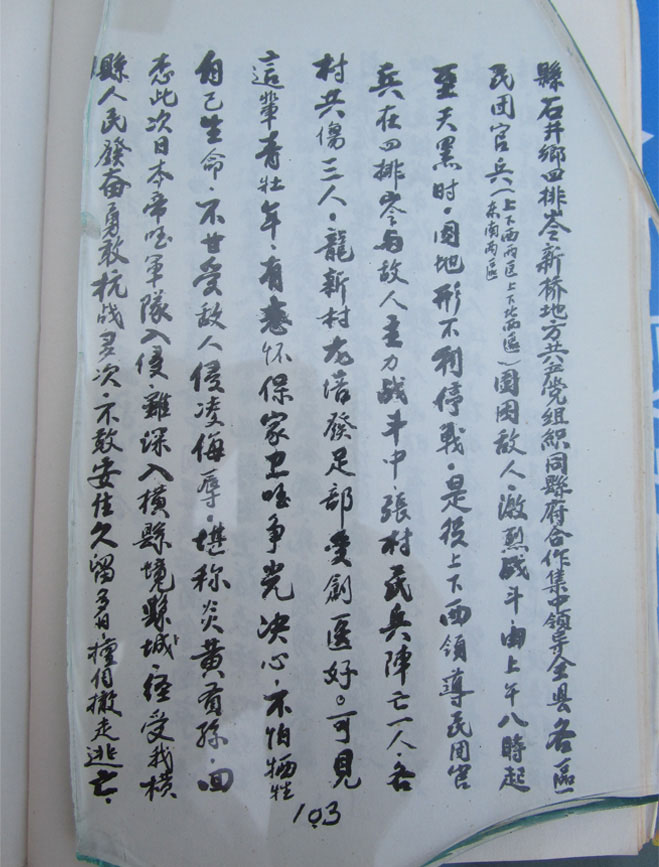 縣石井鄉四排岺新桥地方共产党组織同縣府合作集中領导全县各區
民团官兵(上下西两區上下北两區东南两區)圍困敌人·激烈战斗·由上午八時起
至天黑时·因地形不利停戰·是役上下西領導民团官
兵在四排岺与敌人主力战斗中·張村民兵陣亡一人·各
村共傷三人·龍新村龙培發足部受創医好。可见
這輩青壮年·有志怀保家卫国争光决心·不怕牺牲
自己生命·不甘受敌人侵凌侮辱·堪称炎黄有孫·回
志此次日本帝国軍隊入侵·雖深入横縣境縣城·经受我横
縣人民發奋勇敢抗战多次·不敢安住久留多日·撤走逃亡·
103